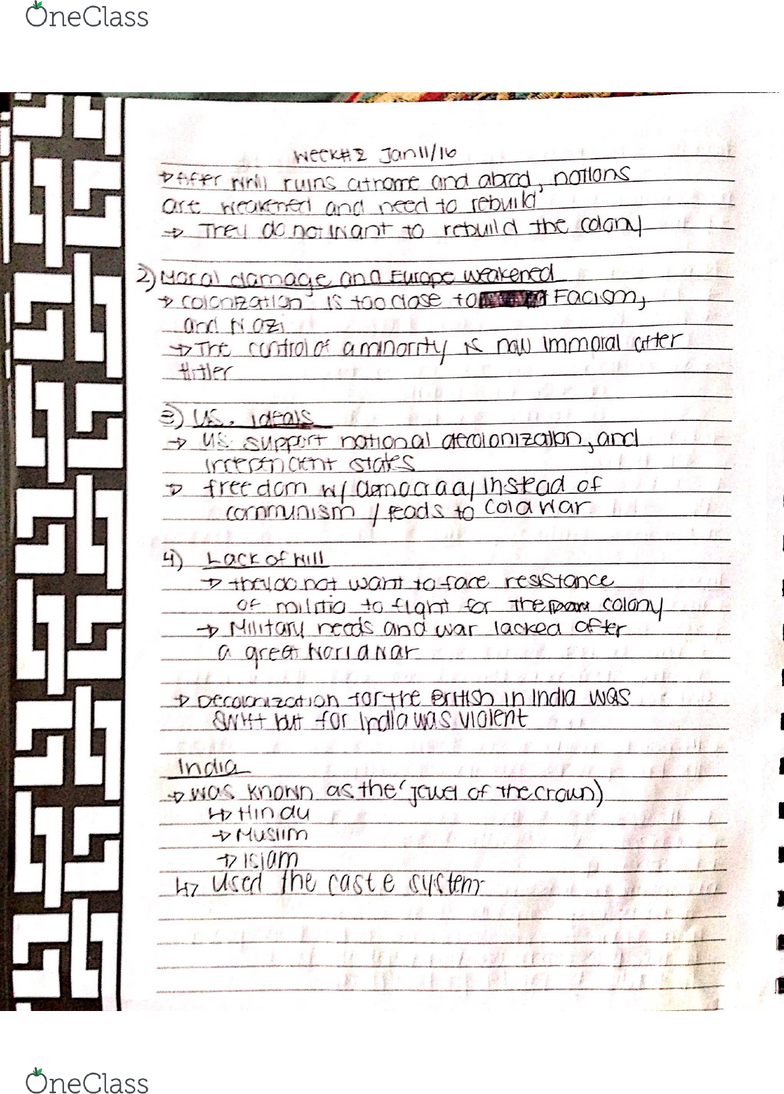 OneClass
Week#2 Jan 11/16
→ After WWII ruins at home and abrod, nations
are weakened and need to rebuild
→ They do not want to rebuild the colony
2) Moral damage and Europe weakened
→ colonization is too close to Facism,
and Nazi
→ The control of a minority is now immoral after
Hitler
3) U.S. ideals
→ U.S. support national decolonization, and
independent states
→ freedom w/ democracy instead of
communism / leads to Cold War
4) Lack of Will
→ they do not want to face resistance
of militia to fight for the colony
→ Military needs and war lacked after
a great World War
→ Decolonization for the British in India was
swift but for India was violent
India
→ was known as the 'jewel of the crown)
↳ Hindu
→ Muslim
→ Islam
↳ Used the caste system
OneClass